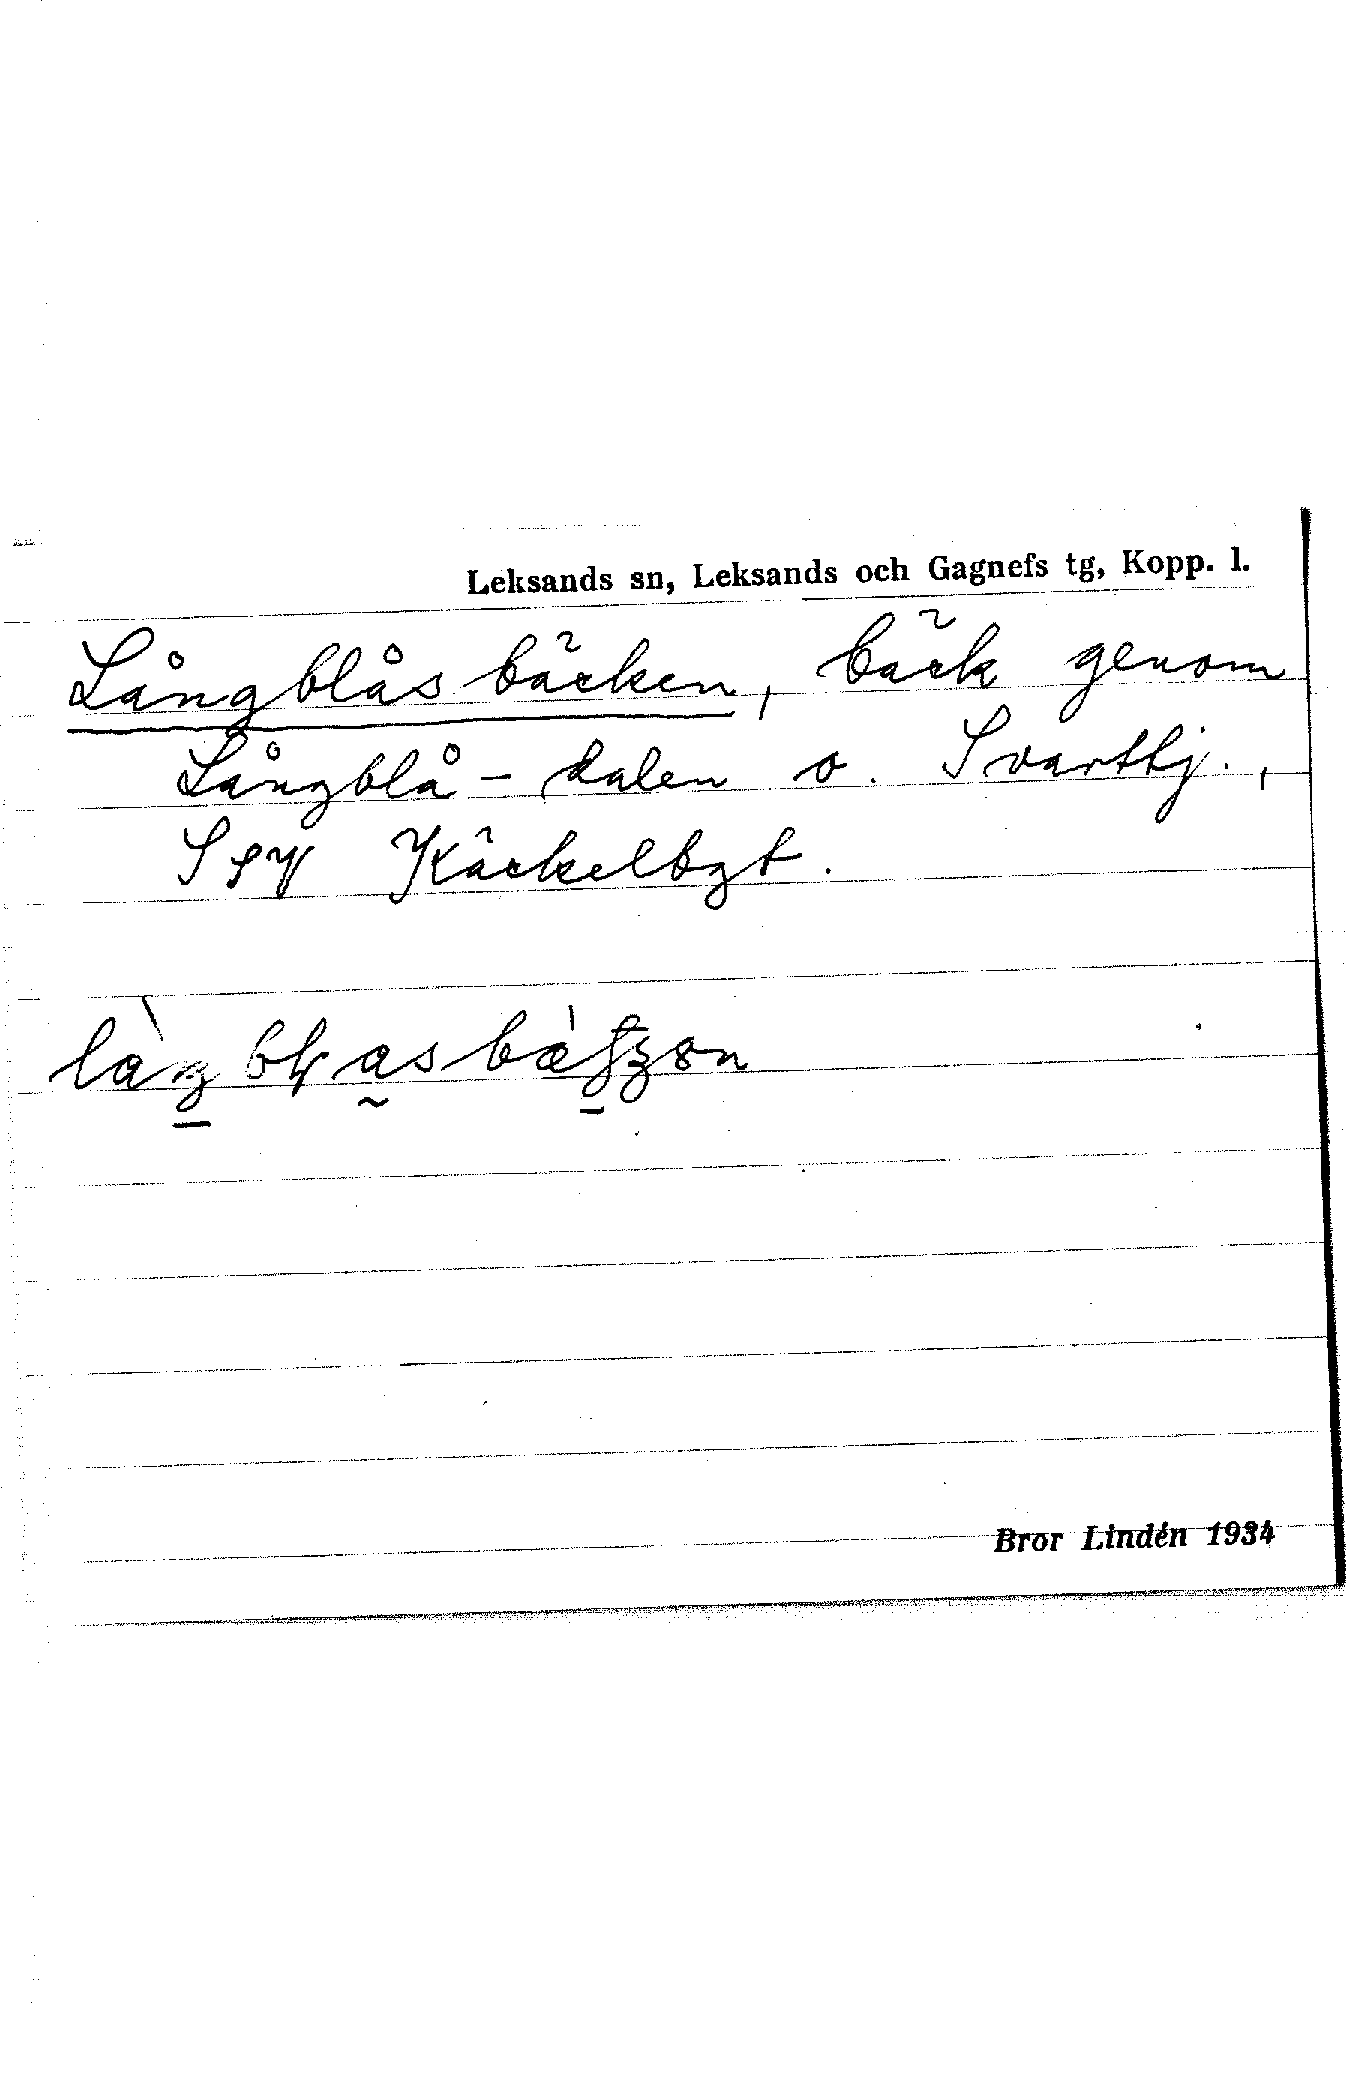 Leksands sn, Leksands och Gagnefs tg, Kopp. l.
Långblåsbäcken, bäck genom
Långblå-dalen o. Svarttj.,
SSV Käckelbgt.
Bror Lindén 1934